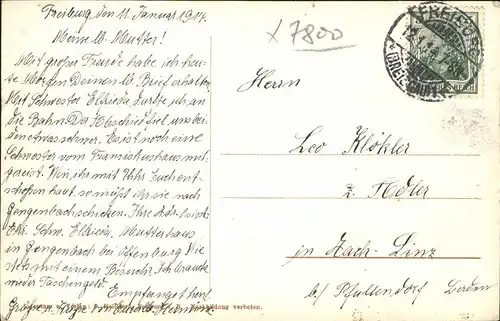 Freiburg, den 11. Januar 1914.
Meine lb. Mutter!
Mit großer Freude habe ich heu-
te Morgen Deinen lb. Brief erhalten.
Mit Schwester Elfriede durfte ich an
die Bahn. Der Abschied fiel uns bei-
den etwas schwer. Es ist noch eine
Schwester vom Franziskushaus mit-
gereist. Wenn ihr mit Uhr Euch ent-
schloßen habt, so müßt ihr sie nach
Gengenbach schicken. Ihre Adr. ist:
Ehrw. Schw. Elfriede Mutterhaus
in Gengenbach bei Offenburg. Wie
steht es mit einem Besuch? Ich brauche
wieder Taschengeld.
Empfanget herzl.
Grüße u. Küße von Eurer Hermine
x 7800
FREIBURG
(BREISGAU)
Herrn
Leo Klökler
z. Adler
in Aach-Linz
b/ Pfullendorf Baden
verboten.